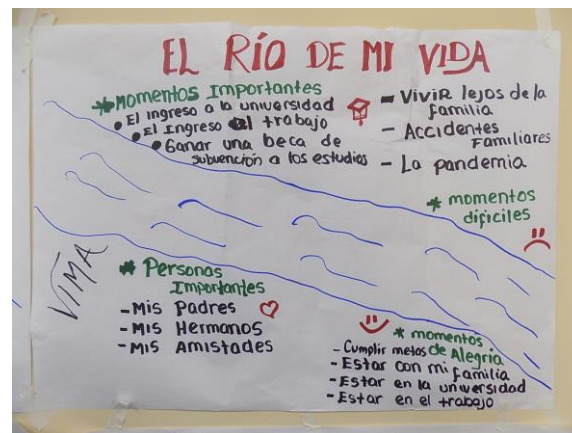 EL RÍO DE MI VIDA
* Momentos Importantes
• El ingreso a la universidad
• El Ingreso al trabajo
• Ganar una beca de
subvención a los estudios
- Vivir lejos de la
familia
- Accidentes
Familiares
- La pandemia
* momentos
dificiles
VIMA
* Personas
Importantes
- Mis Padres
- Mis Hermanos
- Mis Amistades
* momentos
de Alegria
- Cumplir metas
- Estar con mi familia
- Estar en la universidad
- Estar en el trabajo